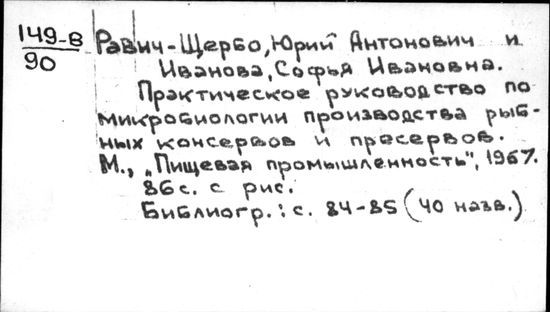 149-В
90
Равич-Щербо, Юрий Антонович и
Иванова, Софья Ивановна.
Практическое руководство по
микробиологии производства рыб-
ных консервов и пресервов.
М., „Пищевая промышленность", 1967.
86 с. с рис.
Библиогр.: с. 84-85 (40 назв.)